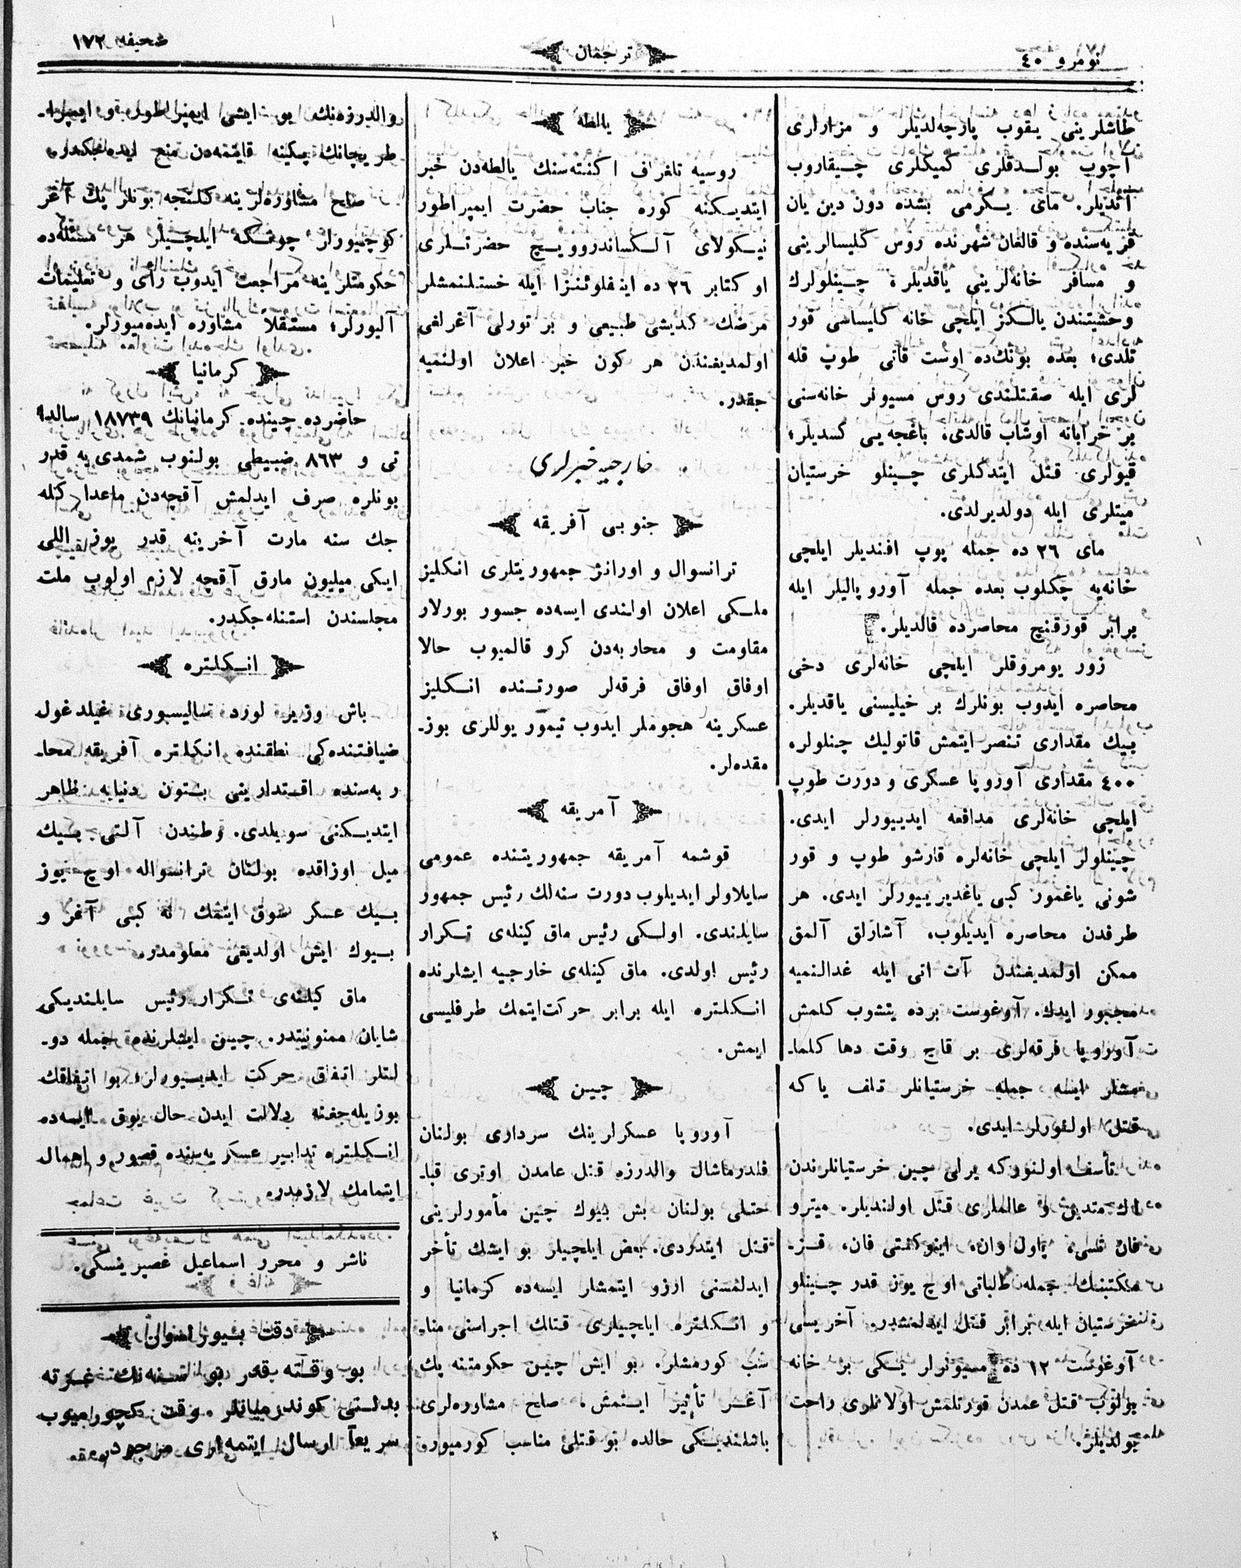 نومرو ٤٠
ترجمان
صحیفه ١٧٢
طاشلرینی یقوب پارچه‌لدیلر و مزارلری
آچوب بولدقلری کمیکلری چیقاروب
آتدیلر. مای یکرمی بشده دون دین یان
قریه‌سنده و قالغان شهرنده روس کلیسالرینی
و مسافر خانه‌لرینی یاقدیلر؛ چینلولرك
وحشتندن یالکز ایلچی خانه کلیساسی قور
قلدی؛ بعده بونك‌ده اوست قاتی طوپ قله
لری ایله صقتلندی روس مسیونر خانه‌سنی
بر خرابانه اوشاب قالدی، باغچه‌یی کسدیلر؛
قیولری قتل ایتدکلری چینلو خرستیان
میتلری ایله دولدیرلدی.
مای ٢٦ ده جمله پوپ افندیلر ایلچی
خانه‌یه چکلوب بعده جمله آوروپالیلر ایله
برابر قورقنچ محاصرده قالدیلر.
زور یومروقلر ایلچی خانه‌لری دخی
محاصره ایدوب بونلرك بر خیلیسنی یاقدیلر.
بیك مقداری تنصر ایتمش قاتولیك چنلولر،
٤٠٠ مقداری آوروپا عسکری و دورت طوپ
ایلچی خانه‌لری مدافعه ایدییورلر ایدی.
چینلولر ایلچی خانه‌لره قارشو طوپ و قور
شونی یاغمور کبی یاغدیرییورلر ایدی. هر
طرفدن محاصره ایدیلوب، آشازلق آلمق
ممکن اولمدیغندن آت اتی ایله غدالنمیه
مجبور ایدك. آوغوست برده یتشوب کلمش
آوروپا فرقه‌لری بر قاچ وقت دها کلما۔
مشلر ایسه جمله خرستیانلر تلف یا که
قتل اولنورلر ایدی.
تأسف اولنور که یرلی چین خرستیانلرندن
اك متدین و عالملری قتل اولندیلر. میترو
فان تسی، پاول وان، اینوکنتی فان، قز۔
مکتبنك جمله طلباتی اوچ یوز قدر چینلو
خرستیان ایله برابر قتل ایدلمشدر. آخریسی
آوغوست ١٢ ده مسیونرلر یکی بر خانه
بولوب قتل عمدن قورتلمش اولانلری راحت
بولدیلر.
یالطه
روسیه تلغراف اکنته‌سنك یالطه‌دن خبر
ایتدیکنه کوره جناب حضرت ایمپراطور
نیکولای آلکساندروویچ حضرتلری
اوکتابر ٢٦ ده اینفلوئنزا ایله خستلنمشلر
مرضك کدیشی طبیعی و بر تورلی آغرلغی
اولمدیغندن هر کون خبر اعلان اولنمیه
جقدر.
خارجیه خبرلری
جنوبی آفریقه
ترانسوال و اورانژ جمهوریتلری انکلیز
ملکی اعلان اولندی ایسه‌ده جسور بورلار
مقاومت و محاربه‌دن کرو قالمیوب حالا
اوفاق اوفاق فرقه‌لر صورتنده انکلیز
عسکرینه هجوملر ایدوب تیمور یوللری بوز۔
مقده‌لر.
آمریقه
قوشمه آمریقه جمهوریتنده عمومی
سایلاولر ایدیلوب دورت سنه‌لك رئیس جمهور
سایلندی. اولکی رئیس ماق کینله‌ی تکرار
رئیس اولدی. ماق کینله‌ی خارجیه ایشلرنده
انکلتره ایله برابر حرکت‌ایتمك طرفلیسی
ایمش.
چین
آوروپا عسکرلرینك سرداری بولنان
فلدرماشال والدرزه قتل عامدن اوتری قبا۔
حتلی بولنان بش بیوك چین مأمورلرینی
قتل ایتدردی. بعض ایلچیلر بو ایشك تأخر
ایدلمسنی ارزو ایتمشلر ایسه‌ده کرمانیا و
و انکلتره ایلچیلری قتلك اجراسنی منا۔
سب کورمشلر. بو ایش چین حکومتنه پك
آغر تأثیر ایتمش، صلح مشاوره‌لری
باشلندیکی حالده بو قتلی مناسب کورمیور.
والدرزه‌نك بو ایشی ایمپراطور و ایمپرا۔
طریچانك پکینه قایتمه‌دن منع ایده‌جکدر.
صلح مشاوره‌لرینه کلنجه بونلر پك آغر
کوچیورلر چونکه ایلچیلر هر مسئله‌ده
حکومتلرینه مراجعت ایدوب رأی و تعلیمات
آلیورلر؛ مستقلا مشاوره ایده‌میورلر.
کرمانیا
حاضرده چینده کرمانیانك ١٨٧٣٩ سالدا
تی و ٨٦٣ ضبیطی بولنوب شمدی‌یه قدر
بونلره صرف ایدلمش آقچه‌دن ماعدا کله
جك سنه مارت آخرینه قدر یوز اللی
ایکی میلیون مارق آقچه لازم اولوب ملت
مجلسندن استنله‌جکدر.
انکلتره
باش وزیر لورد سالیسبوری غیلدغول
ضیافتنده‌کی نطقنده انکلتره آفریقه محا۔
ربه‌سنده اقتدارینی بتون دنیایه ظاهر
ایتدیکنی سویلدی. وطندن آلتی بیك
میل اوزاقده بولنان ترانسواله اوچ یوز
بیك عسکر سوق ایتمك نه کبی آغر و
بیوك ایش اولدیغی معلومدر.
ماق کینله‌ی تکرار رئیس سایلندیکی
شایان ممنونیتدر. چین ایشلرنده جمله دو۔
لتلر اتفاق حرکت ایدییورلر، بو اتفاقك
بوزیله‌جغنه دلالت ایدن حال یوق ایسه‌ده
انکلتره تدابیر عسکریه‌سنده قصور و اهمال
ایتمامك لازمدر.
ناشر و محرر اسماعیل غصپرینسکی.
دقت بیورلسون
بو وقته قدر بو سنه‌نك غزته
بدلتی کوندرمیانلر وقت کچورمیوب
سریعاً ارسال ایتمه‌لری مرجودر.